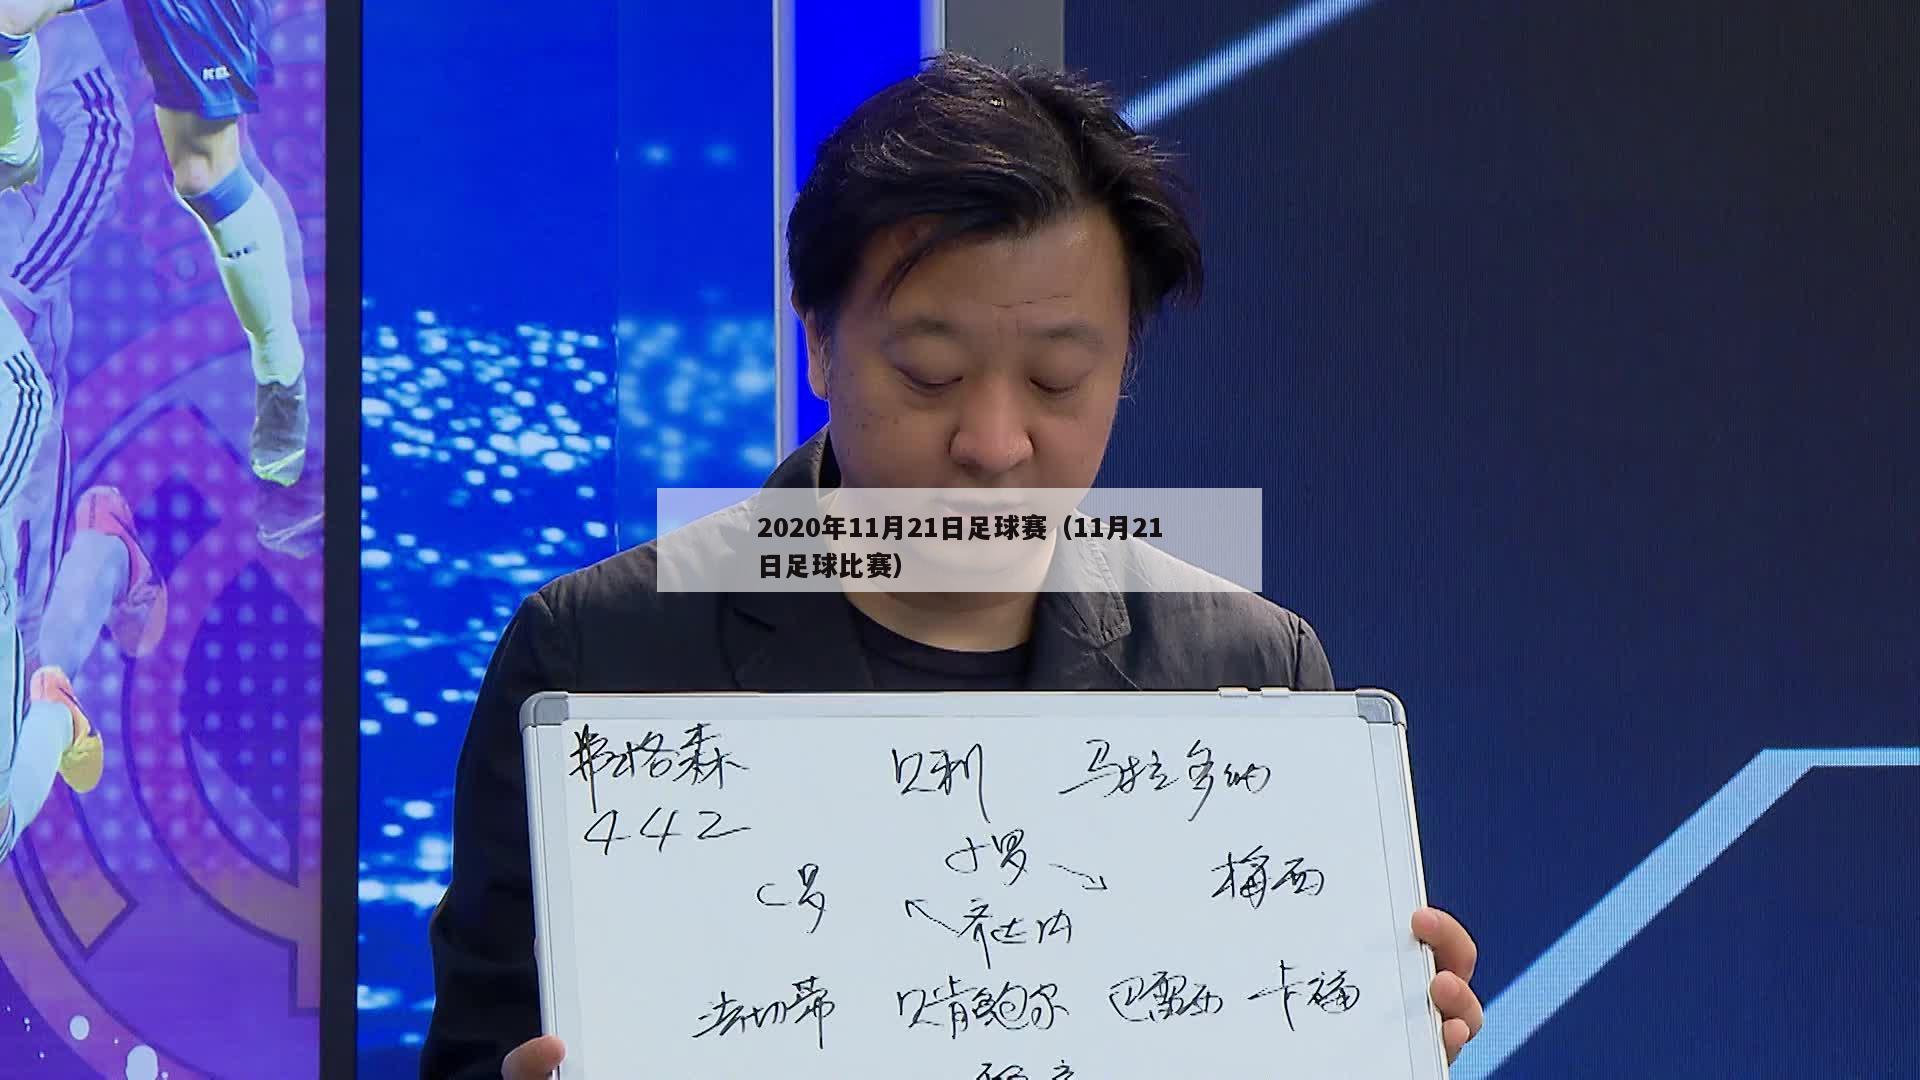 2020年11月21日足球赛（11月21
日足球比赛）
弗格森 贝利 马拉多纳
442
小罗
C罗 梅西
齐达内
法切蒂 贝肯鲍尔 巴雷西 卡福